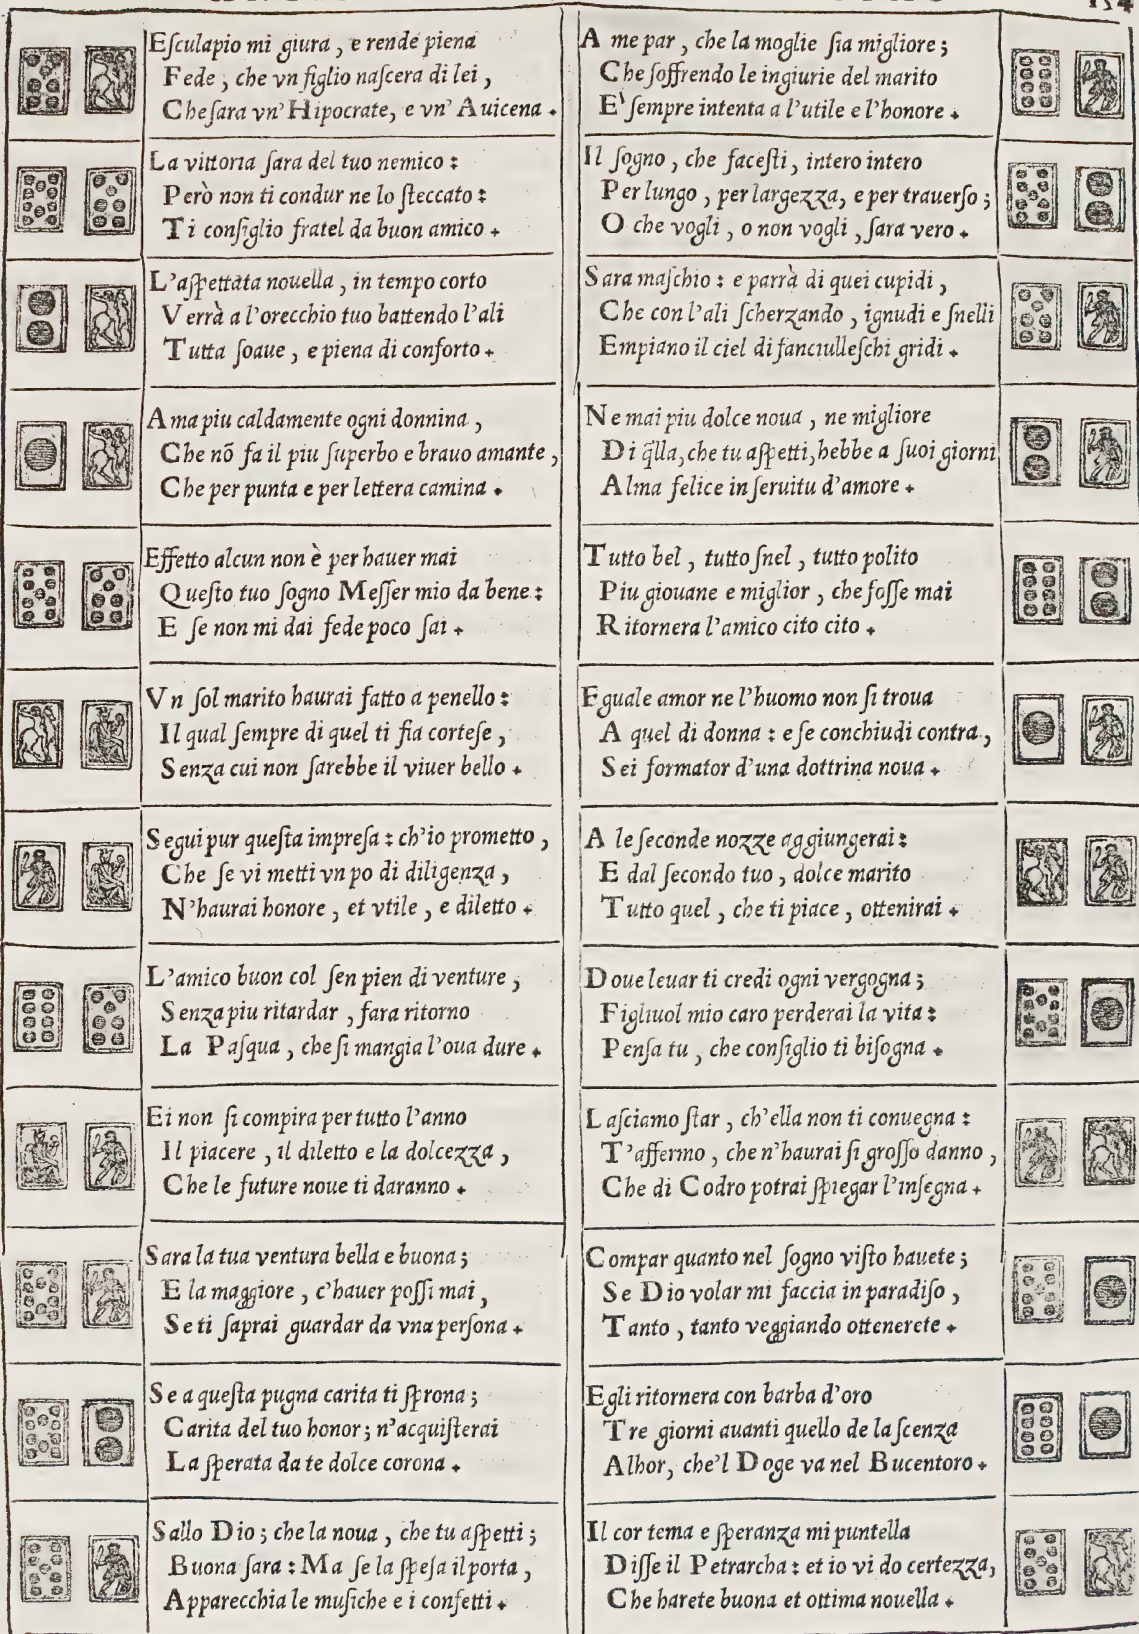 154
Eſculapio mi giura, e rende piena
Fede, che vn figlio naſcera di lei,
Che ſara vn' Hipocrate, e vn' Auicena.
La vittoria ſara del tuo nemico:
Però non ti condur ne lo ſteccato:
Ti conſiglio fratel da buon amico.
L'aſpettata nouella, in tempo corto
Verrà a l'orecchio tuo battendo l'ali
Tutta ſoaue, e piena di conforto.
Ama piu caldamente ogni donnina,
Che nõ fa il piu ſuperbo e brauo amante,
Che per punta e per lettera camina.
Effetto alcun non è per hauer mai
Queſto tuo ſogno Meſſer mio da bene:
E ſe non mi dai fede poco ſai.
Vn ſol marito haurai fatto a penello:
Il qual ſempre di quel ti fia corteſe,
Senza cui non ſarebbe il viuer bello.
Segui pur queſta impreſa: ch'io prometto,
Che ſe vi metti vn po di diligenza,
N'haurai honore, et vtile, e diletto.
L'amico buon col ſen pien di venture,
Senza piu ritardar, fara ritorno
La Paſqua, che ſi mangia l'oua dure.
Ei non ſi compira per tutto l'anno
Il piacere, il diletto e la dolcezza,
Che le future noue ti daranno.
Sara la tua ventura bella e buona;
E la maggiore, c'hauer poſſi mai,
Se ti ſaprai guardar da vna perſona.
Se a queſta pugna carita ti ſprona;
Carita del tuo honor; n'acquiſterai
La ſperata da te dolce corona.
Sallo Dio; che la noua, che tu aſpetti;
Buona ſara: Ma ſe la ſpeſa il porta,
Apparecchia le muſiche e i confetti.
A me par, che la moglie ſia migliore;
Che ſoffrendo le ingiurie del marito
E' ſempre intenta a l'utile e l'honore.
Il ſogno, che faceſti, intero intero
Per lungo, per largezza, e per trauerſo;
O che vogli, o non vogli, ſara vero.
Sara maſchio: e parrà di quei cupidi,
Che con l'ali ſcherzando, ignudi e ſnelli
Empiano il ciel di fanciulleſchi gridi.
Ne mai piu dolce noua, ne migliore
Di q̃lla, che tu aſpetti, hebbe a ſuoi giorni
Alma felice in ſeruitu d'amore.
Tutto bel, tutto ſnel, tutto polito
Piu giouane e miglior, che foſſe mai
Ritornera l'amico cito cito.
Eguale amor ne l'huomo non ſi troua
A quel di donna: e ſe conchiudi contra,
Sei formator d'una dottrina noua.
A le ſeconde nozze aggiungerai:
E dal ſecondo tuo, dolce marito
Tutto quel, che ti piace, ottenirai.
Doue leuar ti credi ogni vergogna;
Figliuol mio caro perderai la vita:
Penſa tu, che conſiglio ti biſogna.
Laſciamo ſtar, ch'ella non ti conuegna:
T'affermo, che n'haurai ſi groſſo danno,
Che di Codro potrai ſpiegar l'inſegna.
Compar quanto nel ſogno viſto hauete;
Se Dio volar mi faccia in paradiſo,
Tanto, tanto veggiando ottenerete.
Egli ritornera con barba d'oro
Tre giorni auanti quello de la ſcenza
Alhor, che'l Doge va nel Bucentoro.
Il cor tema e ſperanza mi puntella
Diſſe il Petrarcha: et io vi do certezza,
Che harete buona et ottima nouella.